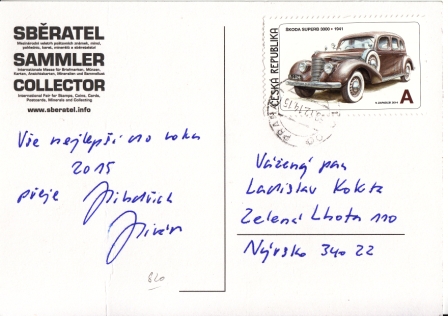 SBĚRATEL
Mezinárodní veletrh poštovních známek, mincí,
pohlednic, karet, minerálů a sběratelství
SAMMLER
Internationale Messe für Briefmarken, Münzen,
Karten, Ansichtskarten, Mineralien und Sammelkult
COLLECTOR
International Fair for Stamps, Coins, Cards,
Postcards, Minerals and Collecting
www.sberatel.info
ŠKODA SUPERB 3000 • 1941
ČESKÁ REPUBLIKA
A
Vše nejlepší do roku
2015
přeje Jindřich
Jirásek
820
Vážený pan
Ladislav Kokta
Zelená Lhota 110
Nýrsko 340 22